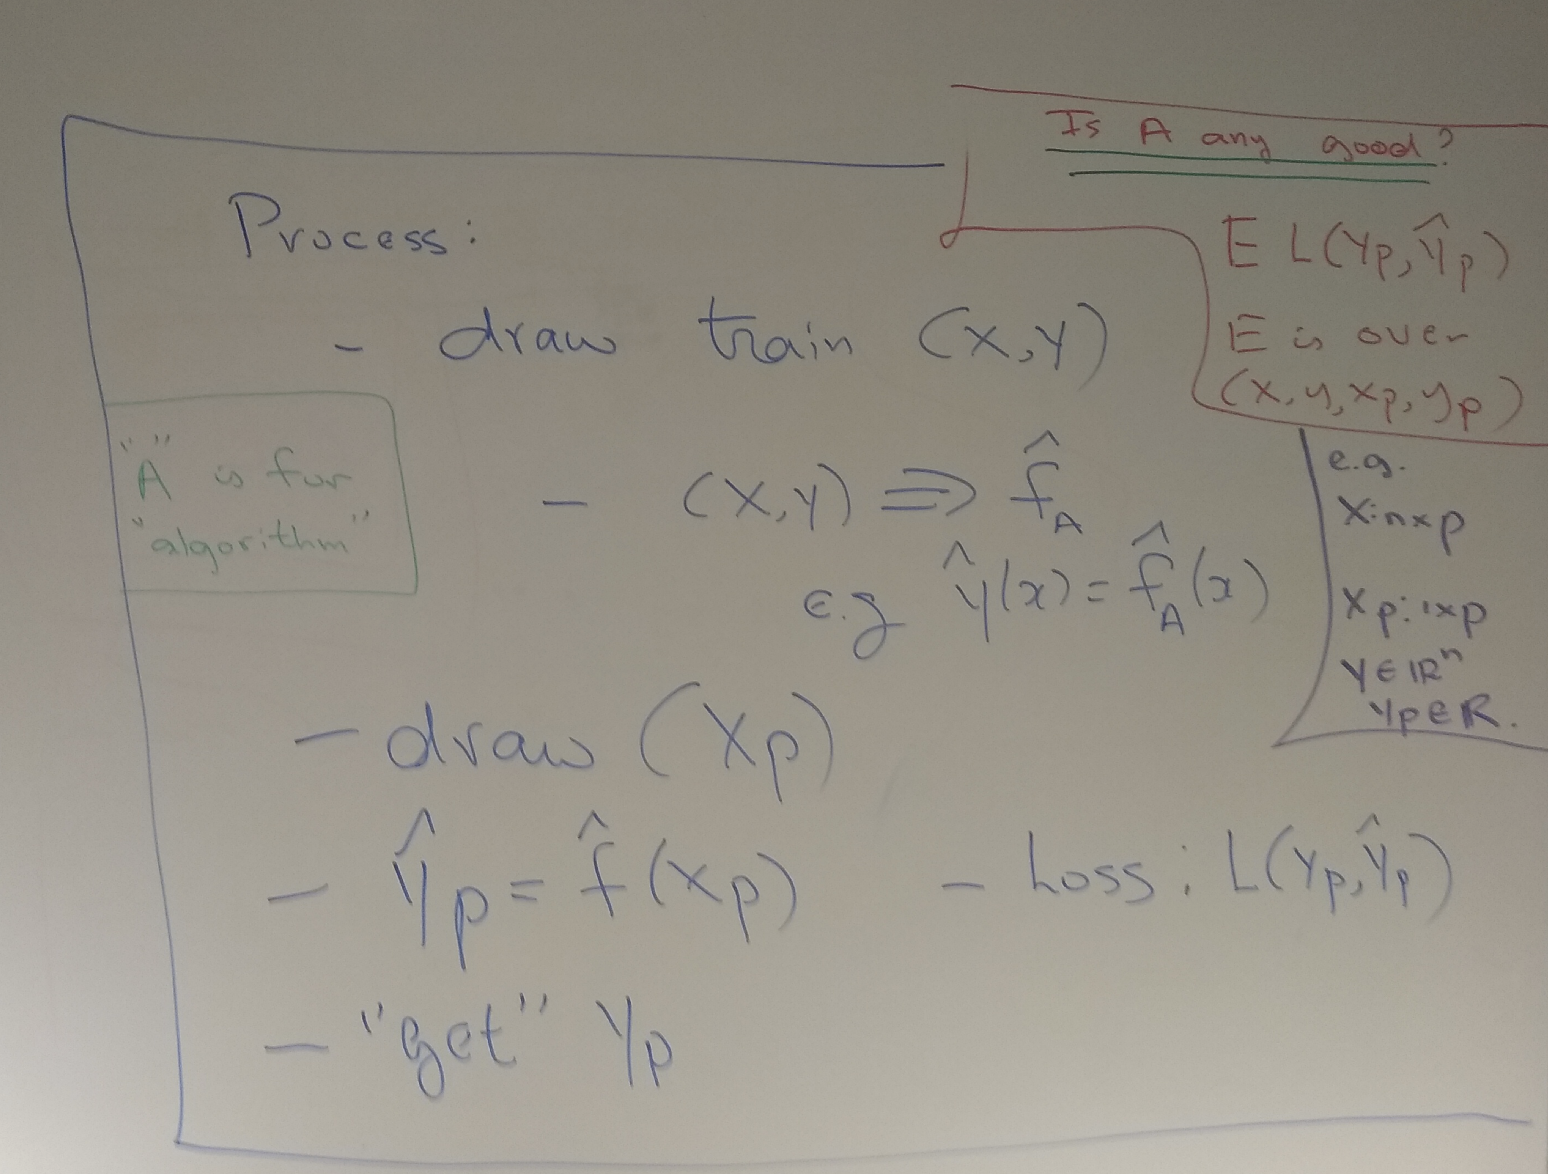 Is A any good?
E L(Yp, Ŷp)
E is over
(x, y, xp, yp)
Process:
- draw train (X,Y)
"A" is for
"algorithm"
- (X,Y) ⇒ f̂_A
e.g ŷ(x) = f̂_A(x)
e.g.
X: nxp
Xp: 1xp
Y ∈ ℝⁿ
Yp ∈ R.
- draw (Xp)
- Ŷp = f̂(Xp)
- Loss: L(Yp, Ŷp)
- "get" Yp